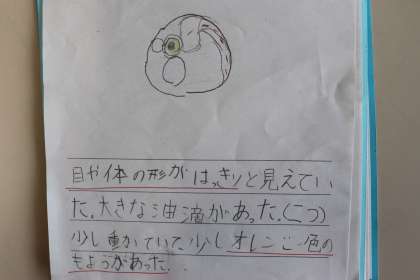 目や体の形がはっきりと見えてい
た。大きな油滴があった。(二つ)
少し動かていて、少しオレンジ色の
もようがあった。